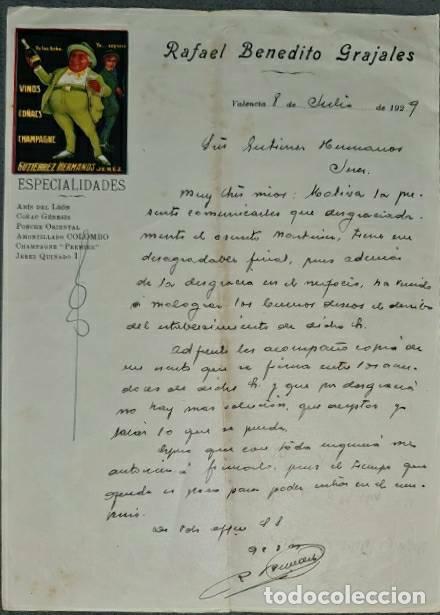 Rafael Benedito Grajales
Valencia 8 de Julio de 1929
VINOS
COÑACS
CHAMPAGNE
GUTIÉRREZ HERMANOS JEREZ
ESPECIALIDADES
Anís del León
Coñac Génesis
Ponche Oriental
Amontillado COLOMBO
Champagne "Premier"
Jerez Quinado 1
Sres Gutierrez Hermanos
Jerez
Muy Sres mios: Motiva la pre
sente comunicarles que desgraciada-
mente el asunto Martinez, tiene un
desagradable final, pues además
de la desgracia en el negocio, ha venido
á malograr los buenos deseos el derribo
del establecimiento de dicho Sr.
Adjunto les acompaño copia de
un escrito que se firma entre los acree
dores de dicho Sr. y que por desgracia
no hay mas solución, que aceptar y
salvar lo que se pueda.
Espero que con toda urgencia me
autoricen á firmarlo, pues el tiempo que
queda es poco para poder entrar en el con-
De Vds affmo S S
todocoleccion